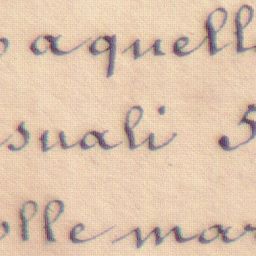 a quell
suali 5
olle mar